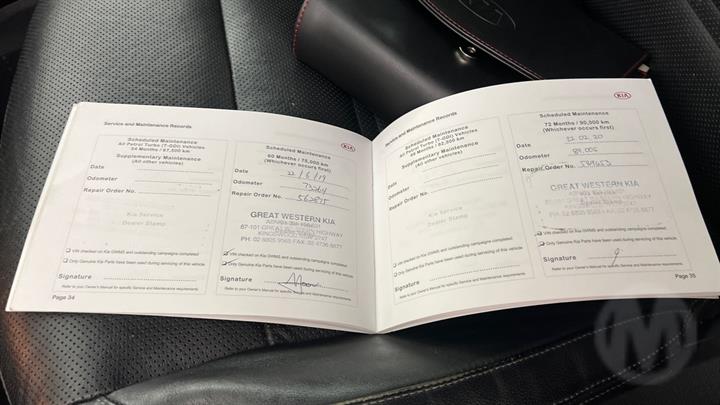 KIA
Service and Maintenance Records
Scheduled Maintenance
All Petrol Turbo (T-GDI) Vehicles
54 Months / 67,500 km
Supplementary Maintenance
(All other vehicles)
Date
Odometer
Repair Order No.
Kia Service
Dealer Stamp
VIN checked on Kia GWMS and outstanding campaigns completed
Only Genuine Kia Parts have been used during servicing of this vehicle
Signature
Refer to your Owner's Manual for specific Service and Maintenance requirements
Page 34
KIA
Scheduled Maintenance
60 Months / 75,000 km
(Whichever occurs first)
Date 22/6/19
Odometer 73264
Repair Order No. 562815
GREAT WESTERN KIA
87-101 GREAT WESTERN HIGHWAY
KINGSWOOD NSW 2747
VIN checked on Kia GWMS and outstanding campaigns completed
Only Genuine Kia Parts have been used during servicing of this vehicle
Signature
Refer to your Owner's Manual for specific Service and Maintenance requirements
Service and Maintenance Records
Scheduled Maintenance
All Petrol Turbo (T-GDI) Vehicles
66 Months / 82,500 km
Supplementary Maintenance
(All other vehicles)
Date
Odometer
Repair Order No.
Kia Service
Dealer Stamp
VIN checked on Kia GWMS and outstanding campaigns completed
Only Genuine Kia Parts have been used during servicing of this vehicle
Signature
Refer to your Owner's Manual for specific Service and Maintenance requirements
KIA
Scheduled Maintenance
72 Months / 90,000 km
(Whichever occurs first)
Date 12 02 20
Odometer 89 005
Repair Order No. 599653
GREAT WESTERN KIA
VIN checked on Kia GWMS and outstanding campaigns completed
Only Genuine Kia Parts have been used during servicing of this vehicle
Signature
Refer to your Owner's Manual for specific Service and Maintenance requirements
Page 35
M